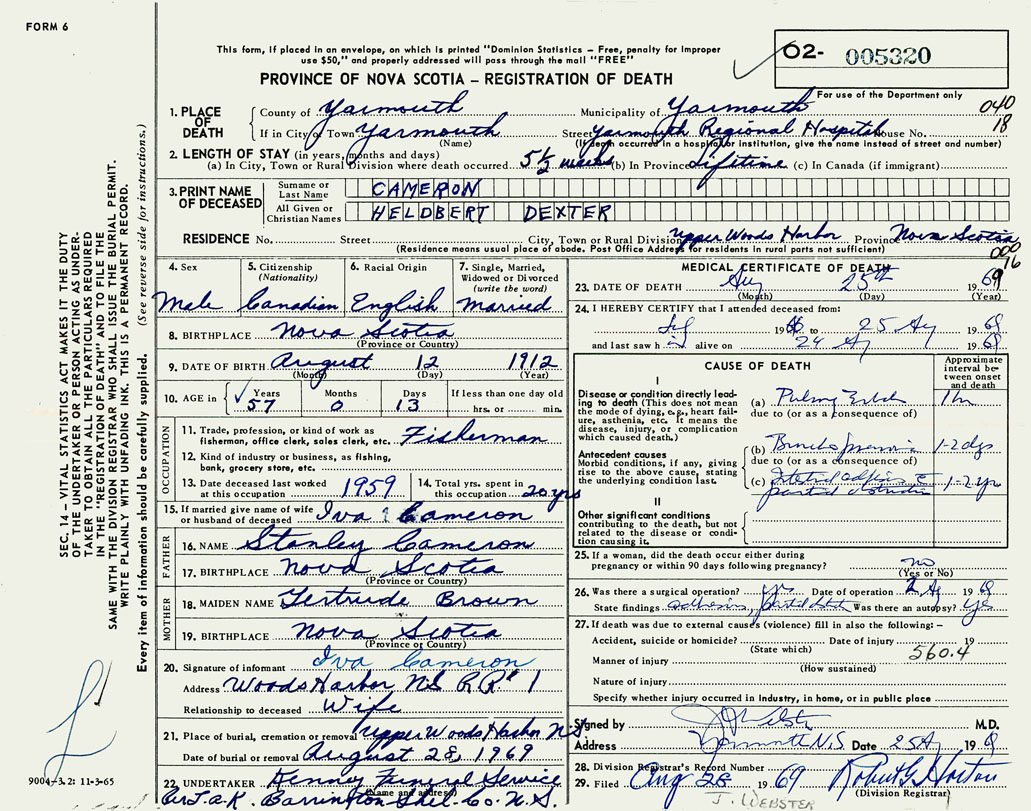 FORM 6
This form, if placed in an envelope, on which is printed "Dominion Statistics – Free, penalty for improper
use $50," and properly addressed will pass through the mail "FREE"
PROVINCE OF NOVA SCOTIA – REGISTRATION OF DEATH
02- 005320
For use of the Department only
040
18
1. PLACE OF DEATH
County of Yarmouth Municipality of Yarmouth
If in City or Town Yarmouth Street Yarmouth Regional Hospital House No.
(Name) (If death occurred in a hospital or institution, give the name instead of street and number)
2. LENGTH OF STAY (in years, months and days)
(a) In City, Town or Rural Division where death occurred 5½ weeks (b) In Province Lifetime (c) In Canada (if immigrant)
3. PRINT NAME OF DECEASED
Surname or Last Name CAMERON
All Given or Christian Names HELDBERT DEXTER
RESIDENCE No. Street City, Town or Rural Division Upper Woods Harbor Province Nova Scotia
(Residence means usual place of abode. Post Office Address for residents in rural parts not sufficient)
000
16
4. Sex
Male
5. Citizenship
(Nationality)
Canadian
6. Racial Origin
English
7. Single, Married,
Widowed or Divorced
(write the word)
Married
8. BIRTHPLACE Nova Scotia
(Province or Country)
9. DATE OF BIRTH August 12 1912
(Month) (Day) (Year)
10. AGE in Years Months Days If less than one day old
57 0 13 hrs. or min.
OCCUPATION
11. Trade, profession, or kind of work as
fishermon, office clerk, sales clerk, etc. Fisherman
12. Kind of industry or business, as fishing,
bank, grocery store, etc.
13. Date deceased last worked
at this occupation 1959
14. Total yrs. spent in
this occupation 20 yrs
15. If married give name of wife
or husband of deceased Iva Cameron
FATHER
16. NAME Stanley Cameron
17. BIRTHPLACE Nova Scotia
(Province or Country)
MOTHER
18. MAIDEN NAME Gertrude Brown
19. BIRTHPLACE Nova Scotia
(Province or Country)
20. Signature of informant Iva Cameron
Address Woods Harbor N.S. R.R# 1
Relationship to deceased Wife
21. Place of burial, cremation or removal Upper Woods Harbor N.S.
Date of burial or removal August 28, 1969
22. UNDERTAKER Kenney Funeral Service
(Name and address)
Barrington Shel. Co. N.S.
MEDICAL CERTIFICATE OF DEATH
23. DATE OF DEATH Aug 25th 1969
(Month) (Day) (Year)
24. I HEREBY CERTIFY that I attended deceased from:
19 to 25 Aug 1969
and last saw him alive on 24 Aug 1969
CAUSE OF DEATH
Approximate
interval be-
tween onset
and death
I
Disease or condition directly lead-
ing to death (This does not mean
the mode of dying, e.g., heart fail-
ure, asthenia, etc. It means the
disease, injury, or complication
which caused death.)
(a)
due to (or as a consequence of)
Antecedent causes
Morbid conditions, if any, giving
rise to the above cause, stating
the underlying condition last.
(b)
due to (or as a consequence of)
(c)
II
Other significant conditions
contributing to the death, but not
related to the disease or condi-
tion causing it.
25. If a woman, did the death occur either during
pregnancy or within 90 days following pregnancy? no
(Yes or No)
26. Was there a surgical operation? yes Date of operation 2 Aug 1969
State findings adhesions, partial Was there an autopsy? Yes
27. If death was due to external causes (violence) fill in also the following: –
Accident, suicide or homicide? Date of injury 19
(State which)
560.4
Manner of injury
(How sustained)
Nature of injury
Specify whether injury occurred in Industry, in home, or in public place
Signed by M.D.
Address Yarmouth N.S. Date 25 Aug 1969
28. Division Registrar's Record Number
29. Filed Aug 28 1969 Robert G. Horton
(Division Registrar)
J. WEBSTER
SEC. 14 – VITAL STATISTICS ACT MAKES IT THE DUTY
OF THE UNDERTAKER OR PERSON ACTING AS UNDER-
TAKER TO OBTAIN ALL THE PARTICULARS REQUIRED
IN THE "REGISTRATION OF DEATH" AND TO FILE THE
SAME WITH THE DIVISION REGISTRAR WHO SHALL ISSUE THE BURIAL PERMIT.
WRITE PLAINLY WITH UNFADING INK. THIS IS A PERMANENT RECORD.
Every item of information should be carefully supplied. (See reverse side for instructions.)
9004-3.2: 11-3-65